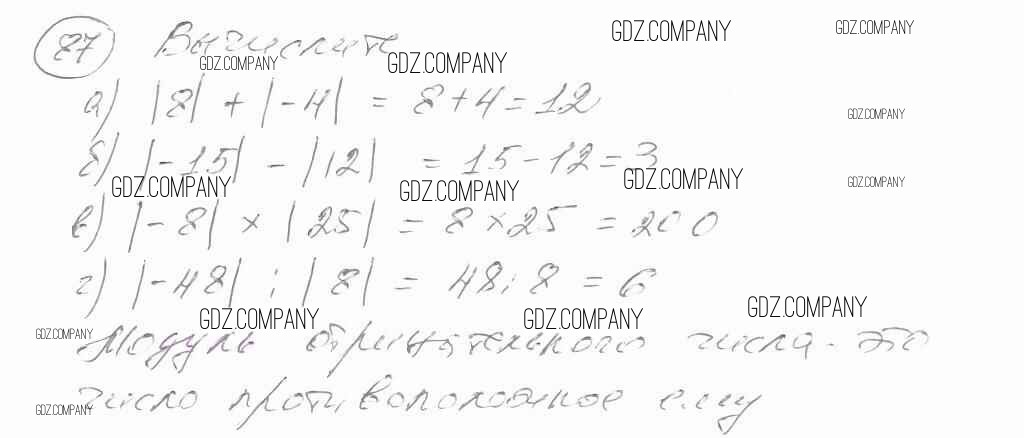 87 Вычислите
GDZ.COMPANY GDZ.COMPANY
GDZ.COMPANY GDZ.COMPANY
а) |8| + |-4| = 8+4=12
GDZ.COMPANY
б) |-15| - |12| = 15-12=3
GDZ.COMPANY GDZ.COMPANY GDZ.COMPANY GDZ.COMPANY
в) |-8| × |25| = 8×25 = 200
г) |-48| : |8| = 48:8 = 6
GDZ.COMPANY GDZ.COMPANY GDZ.COMPANY
GDZ.COMPANY
Модуль отрицательного числа - это
число противоположное ему
GDZ.COMPANY